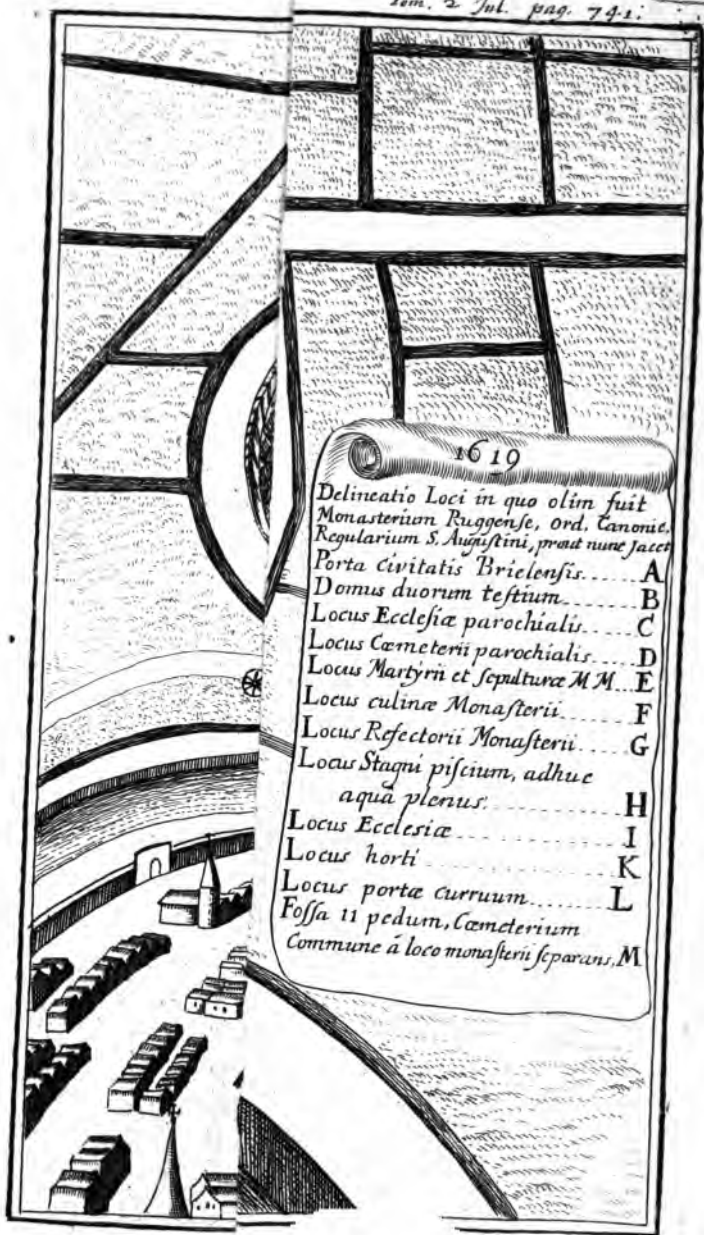 Tom. 2 Jul. pag. 741.
1619
Delineatio Loci in quo olim fuit
Monasterium Ruggense, ord, Canonic.
Regularium S. Augustini, prout nunc Jacet
Porta Civitatis Brielensis...... A
Domus duorum testium........ B
Locus Ecclesiæ parochialis..... C
Locus Cœmeterii parochialis.... D
Locus Martyrii et sepulturæ MM... E
Locus culinæ Monasterii........ F
Locus Refectorii Monasterii..... G
Locus Stagni piscium, adhuc
aquâ plenus:............ H
Locus Ecclesiæ ............ I
Locus horti ............ K
Locus portæ curruum........ L
Fossa 11 pedum, Cœmterium
Commune â loco monasterii separans, M